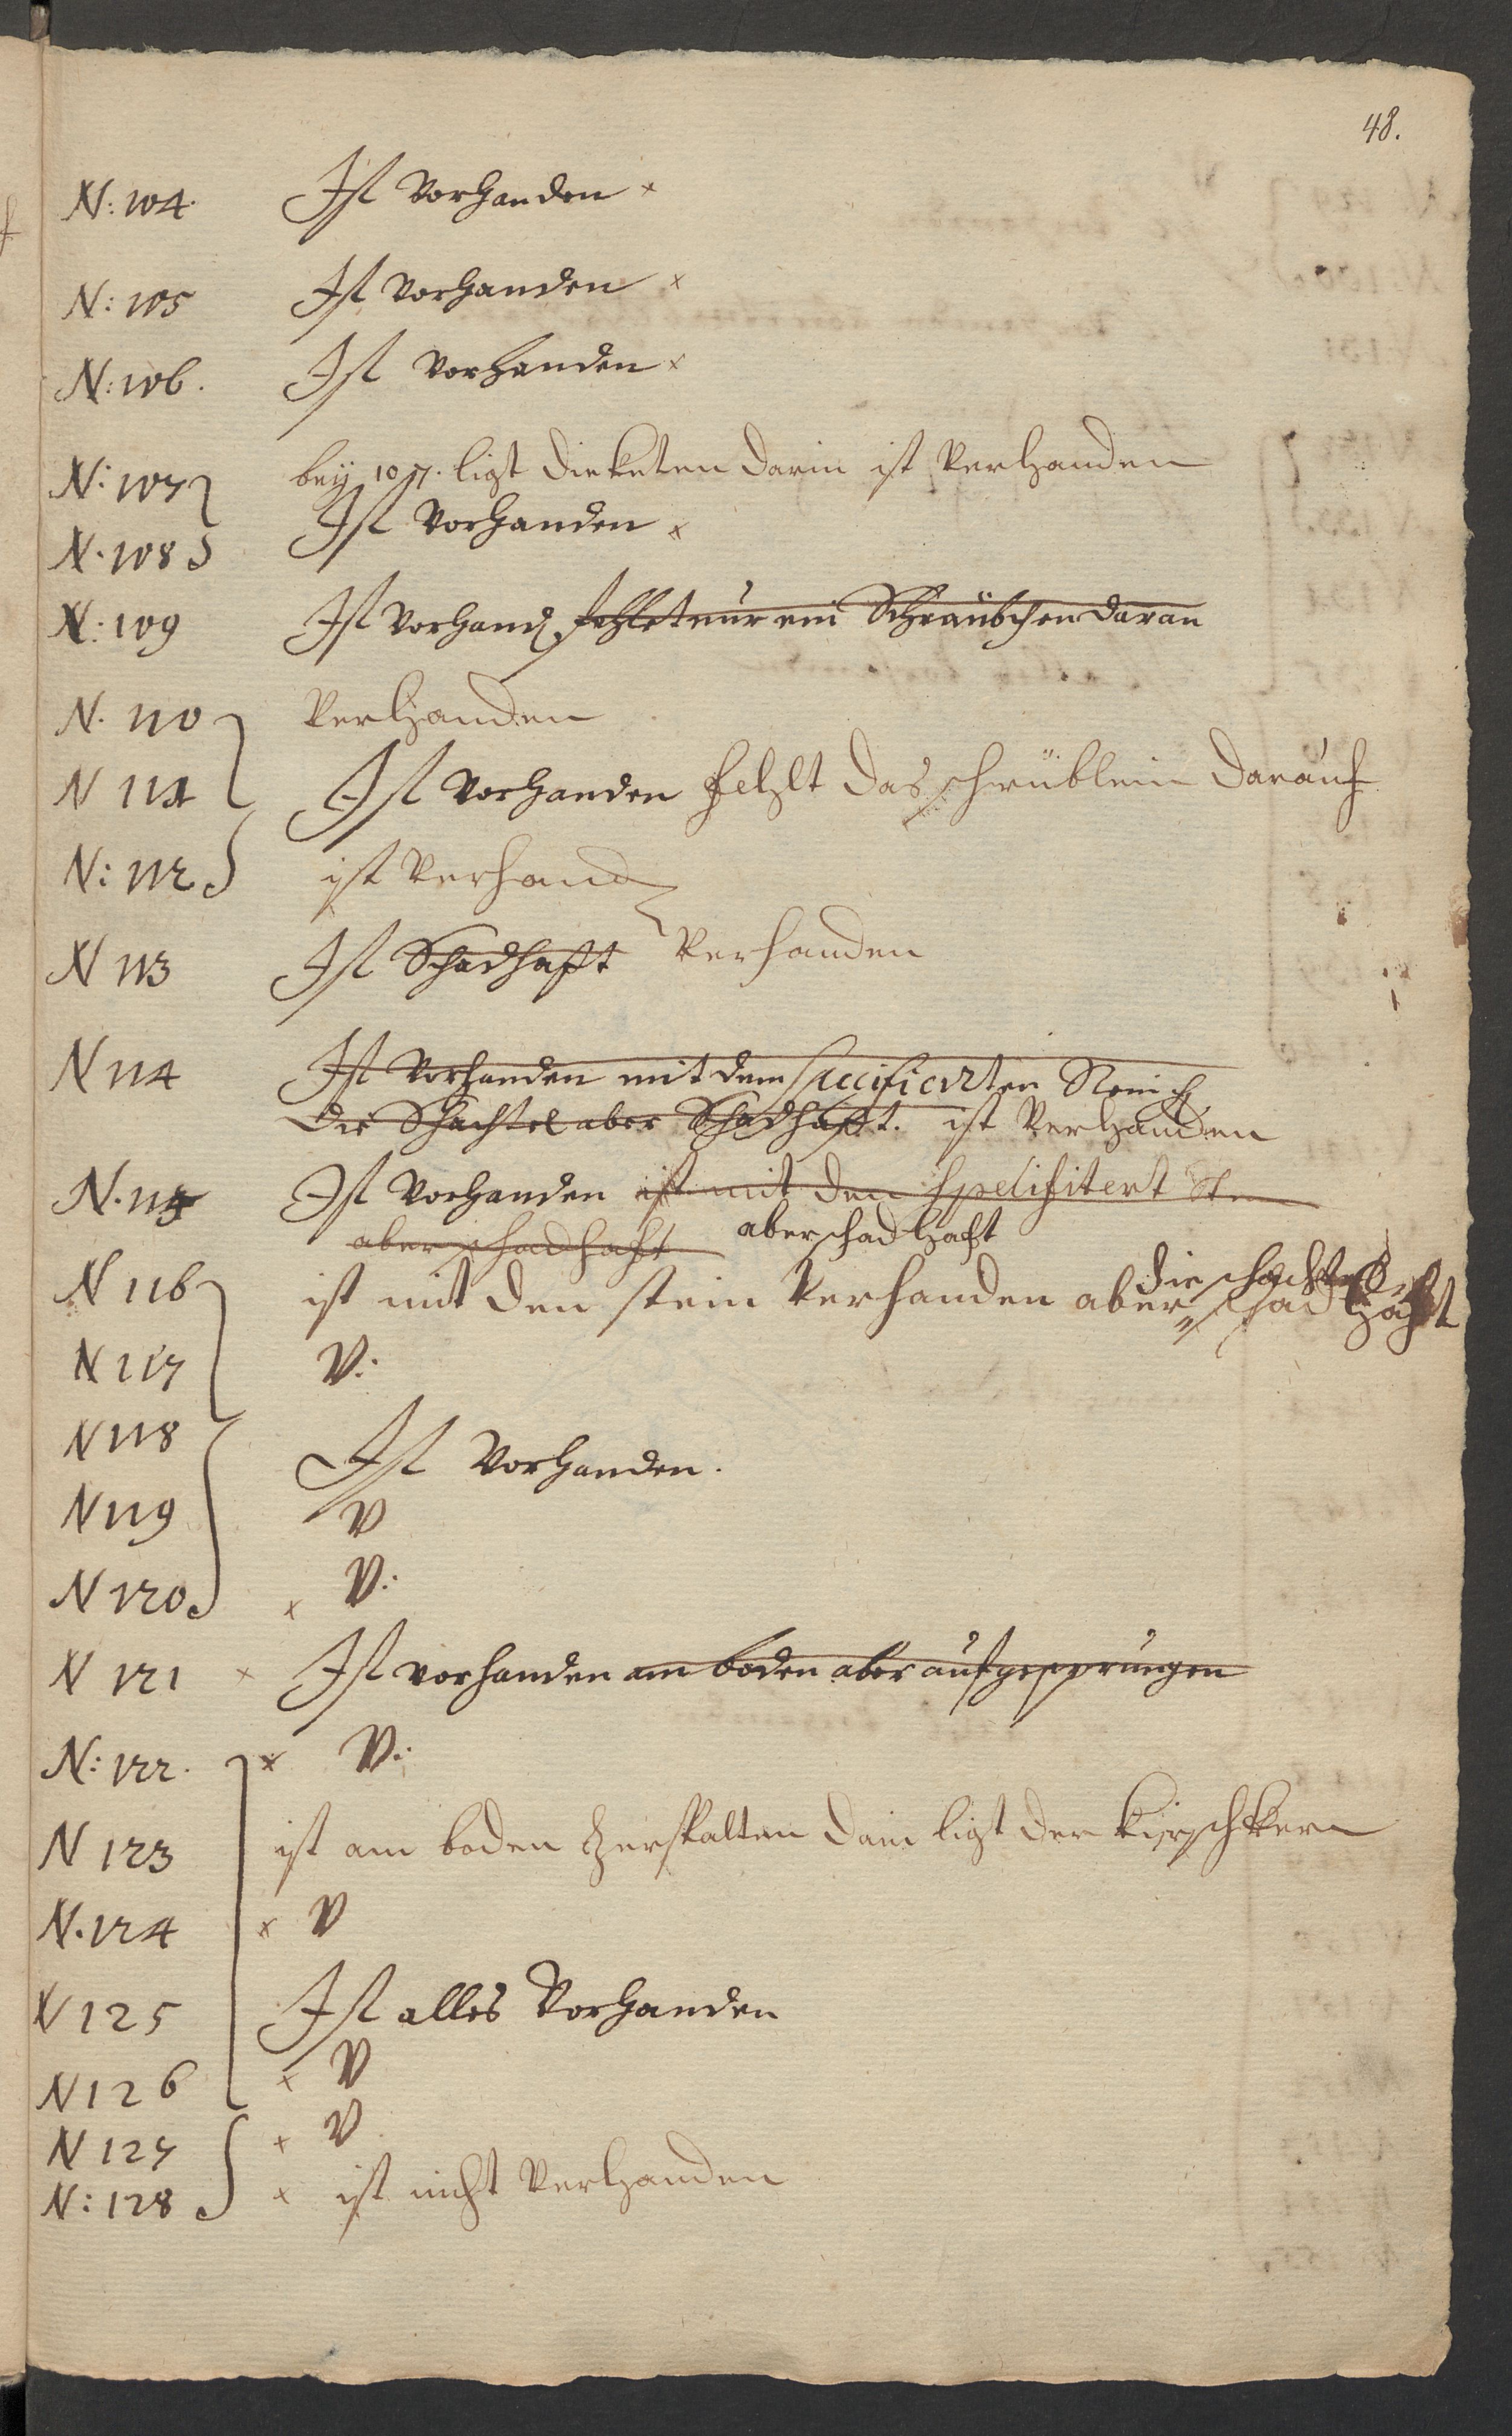 48.
N: 104. Ist vorhanden x
N: 105 Ist vorhanden x
N: 106. Ist vorhanden x
N: 107 beÿ 107. ligt die keten darin ist verhanden
N. 108 Ist vorhanden x
N: 109 Ist vorhand fehlet nur ein Schraubchen daran
N. 110 verhanden
N 111 Ist vorhanden fehlt das schrüblein darauf
N: 112 ist verhand
N 113 Ist Schadhafft verhanden
N 114 Ist vorhanden mit dem specificirten
die Schachtel aber Schadhafft. ist verhanden
N. 115 Ist vorhanden ist mit den spelifitert
aber schadhaft aber schadhaft
die schachtel
N 116 ist mit den stein verhanden aber schadhaft
N 117 V:
N 118 Ist vorhanden.
N 119 V
N 120 x V:
N 121 x Ist vorhanden am boden aber aufgesprungen
N: 122. x V:
N 123 ist am boden zerspalten darin ligt der kirschkern
N. 124 x V
N 125 Ist alles vorhanden
N 126 x V
N 127 x V
N: 128 x ist nicht verhanden